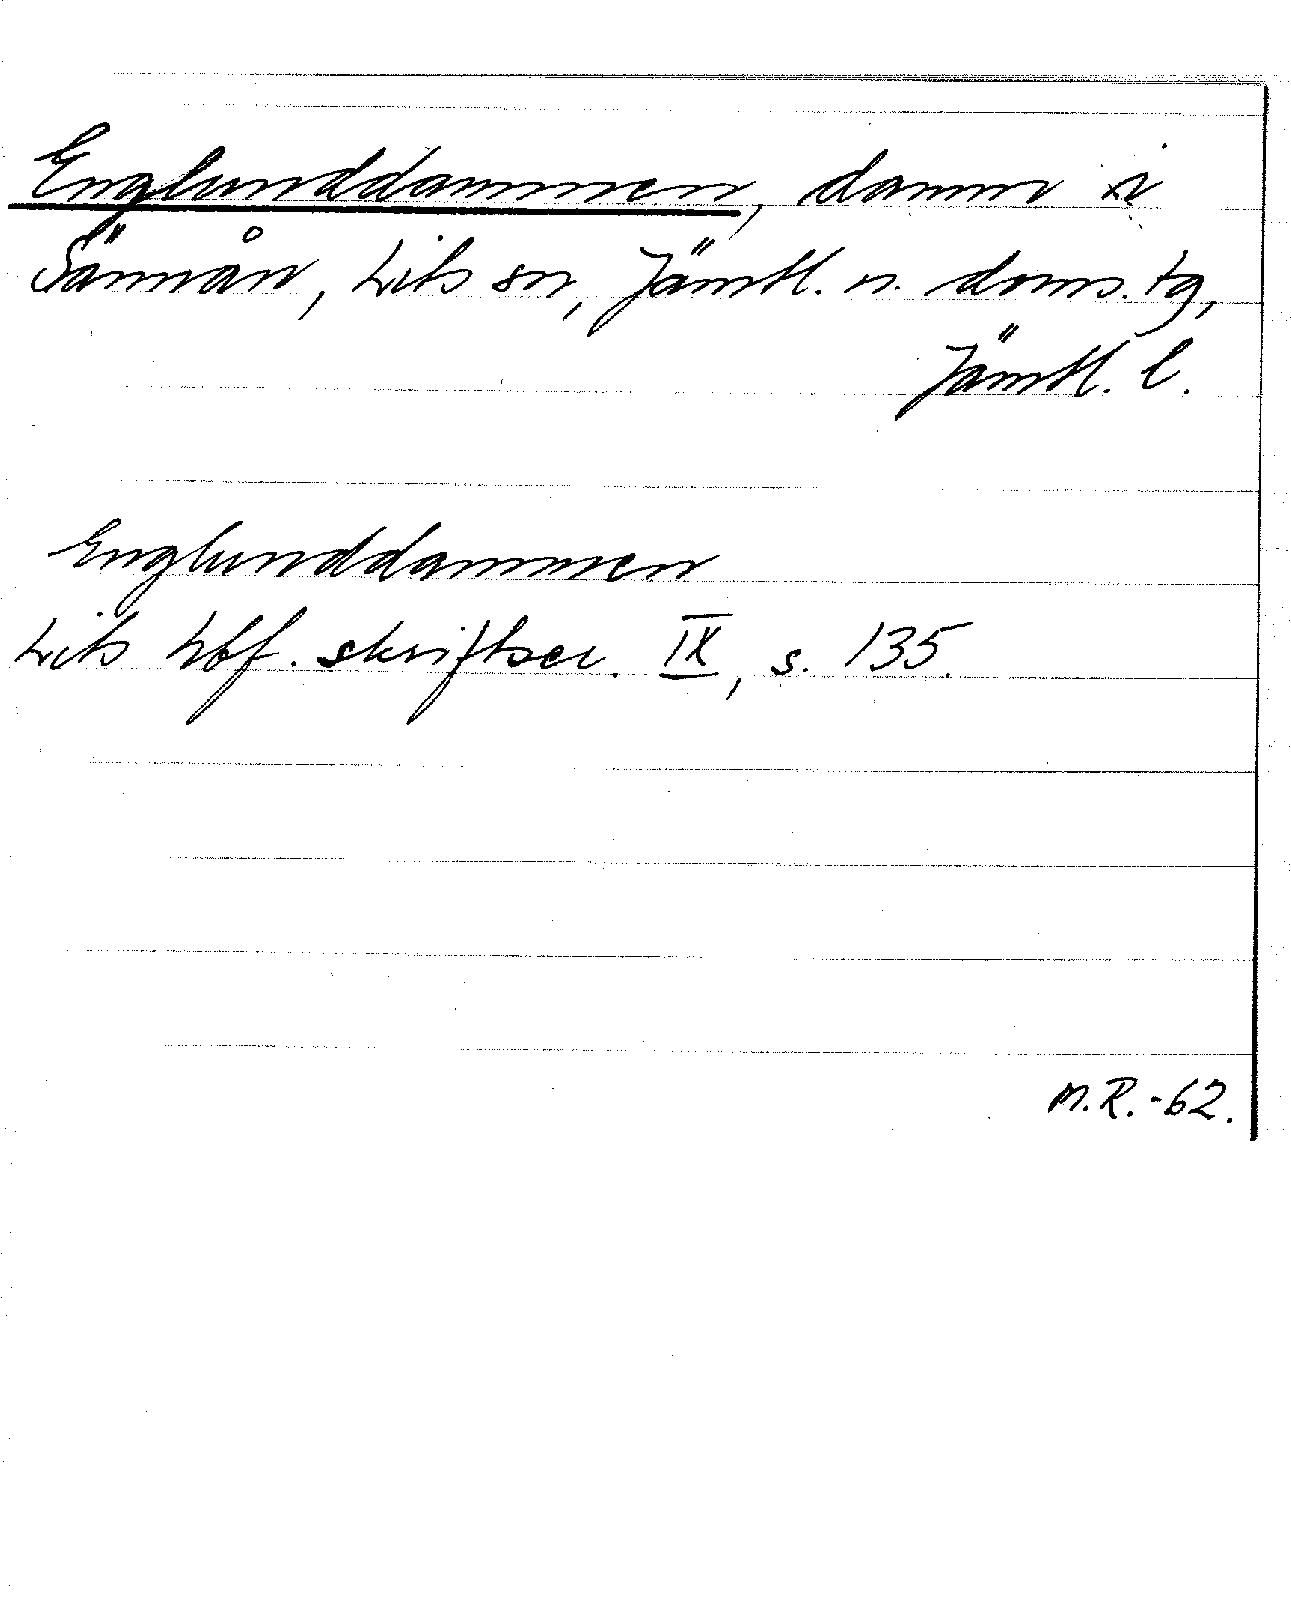 Englunddammen, damm i
Sännån, Lits sn, Jämtl. n. doms. tg,
Jämtl. l.
Englunddammen
Lits hbf. skriftser. IX, s. 135.
M.R.-62.